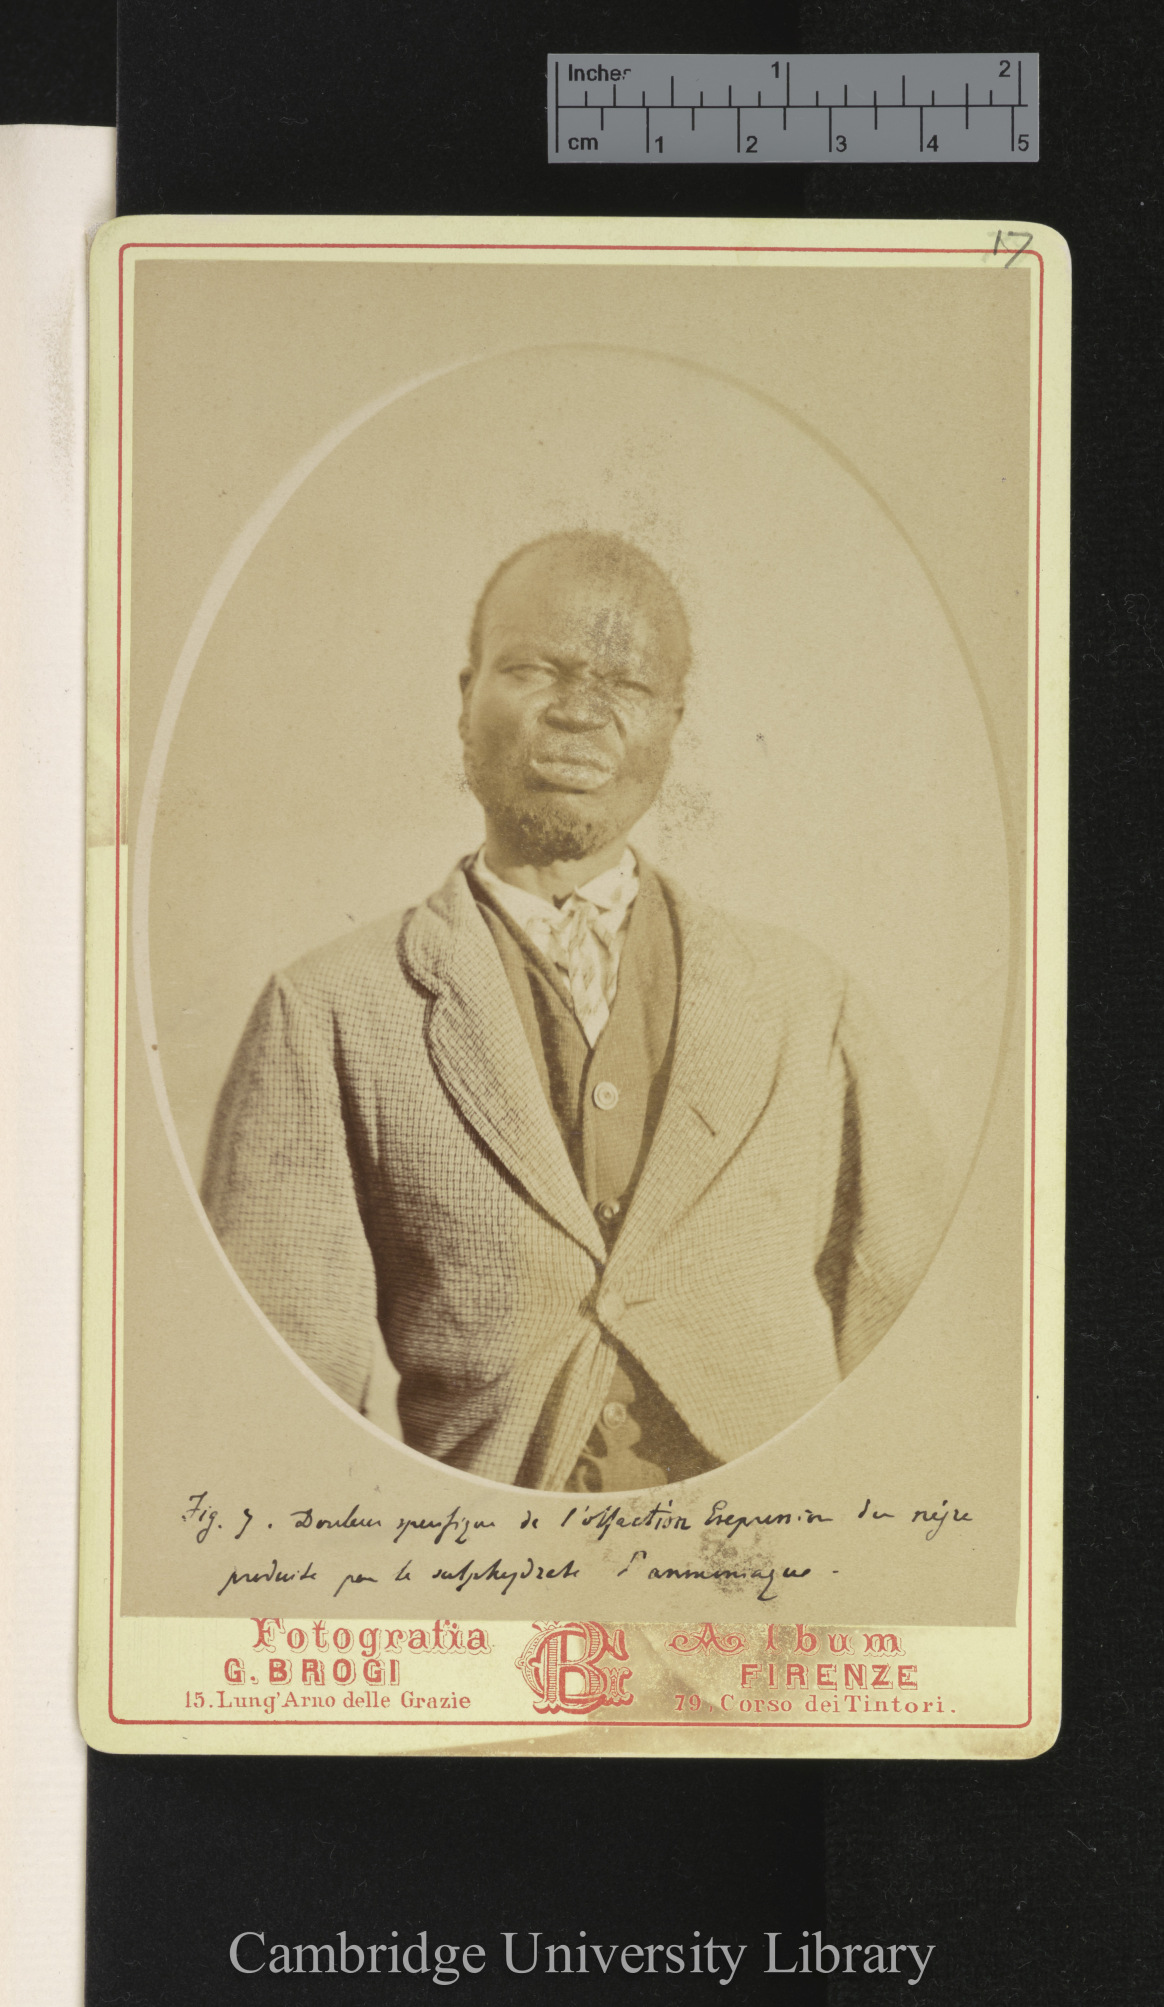 Inches 1 2
cm 1 2 3 4 5
17
Fig. 7. Douleur spécifique de l'olfaction Expression du nègre
produite par le sulphydrate d'ammoniaque.
Fotografia Album
G. BROGI GB FIRENZE
15. Lung'Arno delle Grazie 79, Corso dei Tintori.
Cambridge University Library